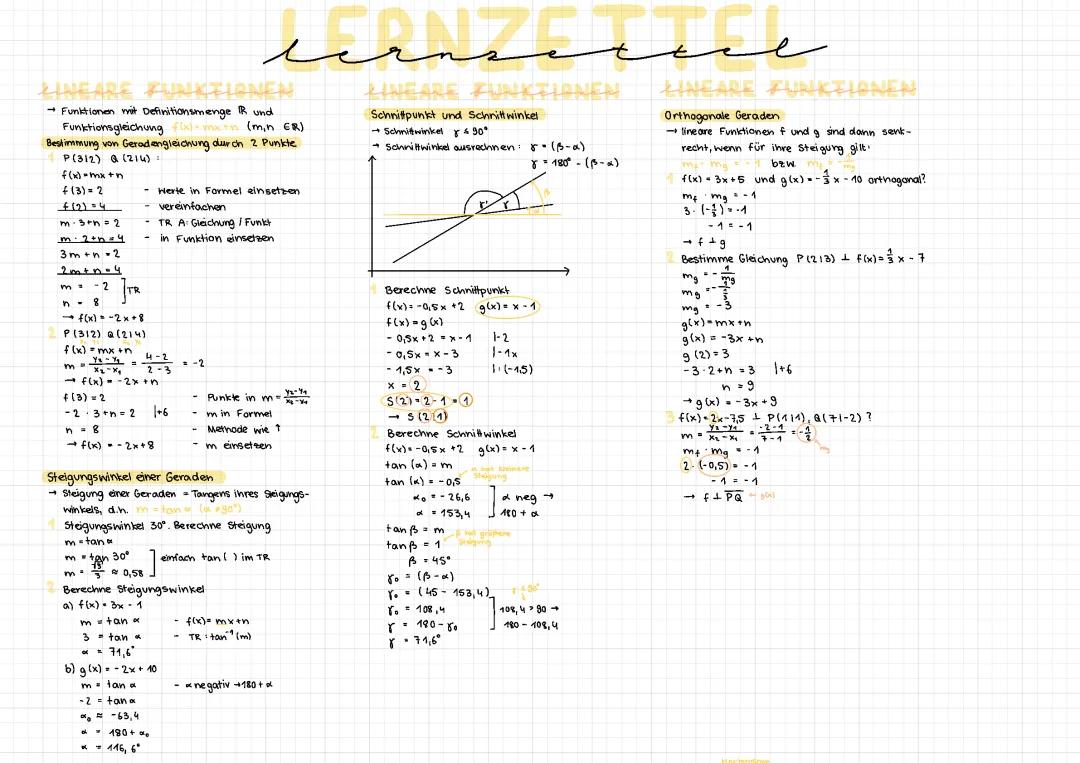 LERNZETTEL
lernzettel
LINEARE FUNKTIONEN
→ Funktionen mit Definitionsmenge ℝ und
Funktionsgleichung f(x)=mx+n (m,n ∈ℝ)
Bestimmung von Geradengleichung durch 2 Punkte
1 P(3|2) Q(2|4) :
f(x)=mx+n
f(3)=2 - Werte in Formel einsetzen
f(2)=4 - vereinfachen
m·3+n=2 - TR A: Gleichung / Funkt
m·2+n=4 - in Funktion einsetzen
3m+n=2
2m+n=4
m = -2 ]TR
n = 8
→ f(x)=-2x+8
2 P(3|2) Q(2|4)
x₁ y₁ x₂ y₂
f(x)=mx+n
m = y₂-y₁/x₂-x₁ = 4-2/2-3 = -2
→ f(x)=-2x+n
f(3)=2 - Punkte in m= y₂-y₁/x₂-x₁
-2·3+n=2 |+6 - m in Formel
n = 8 - Methode wie 1
→ f(x)=-2x+8 - m einsetzen
Steigungswinkel einer Geraden
→ Steigung einer Geraden = Tangens ihres Steigungs-
winkels, d.h. m = tan α (α≠90°)
1 Steigungswinkel 30°. Berechne Steigung
m=tanα
m = tan 30° ] einfach tan( ) im TR
m = √3/3 ≈ 0,58
2 Berechne Steigungswinkel
a) f(x)=3x-1
m = tan α - f(x)=mx+n
3 = tan α - TR: tan⁻¹(m)
α = 71,6°
b) g(x)=-2x+10
m = tanα - α negativ →180+α
-2 = tanα
α₀ ≈ -63,4
α = 180+α₀
α = 116,6°
LINEARE FUNKTIONEN
Schnittpunkt und Schnittwinkel
→ Schnittwinkel γ ≤ 90°
→ Schnittwinkel ausrechnen: γ = (β-α)
γ = 180° - (β-α)
γ' γ β α
1 Berechne Schnittpunkt
f(x)=-0,5x+2 g(x)=x-1
f(x)=g(x)
-0,5x+2=x-1 |-2
-0,5x=x-3 |-1x
-1,5x=-3 |:(-1,5)
x = 2
S(2)=2-1=1
→ S(2|1)
2 Berechne Schnittwinkel
f(x)=-0,5x+2 g(x)=x-1
tan(α)=m
α hat kleinere Steigung
tan(α)=-0,5
α₀ = -26,6 ] α neg →
α = 153,4 180+α
tanβ = m
β hat größere Steigung
tanβ = 1
β = 45°
γ₀ = (β-α)
γ₀ = (45-153,4) γ ≤ 90°
γ₀ = 108,4 ] 108,4>90 →
γ = 180-γ₀ 180-108,4
γ = 71,6°
LINEARE FUNKTIONEN
Orthogonale Geraden
→ lineare Funktionen f und g sind dann senk-
recht, wenn für ihre Steigung gilt:
mf · mg = -1 bzw. mf = -1/mg
1 f(x)=3x+5 und g(x)=-1/3 x-10 orthogonal?
mf · mg = -1
3·(-1/3)=-1
-1=-1
→ f⊥g
2 Bestimme Gleichung P(2|3) ⊥ f(x)=1/3 x-7
mg = -1/mg
mg = -1/(1/3)
mg = -3
g(x)=mx+n
g(x)=-3x+n
g(2)=3
-3·2+n=3 |+6
n=9
→ g(x)=-3x+9
3 f(x)=2x-7,5 ⊥ P(1|1), Q(7|-2)?
m = y₂-y₁/x₂-x₁ = -2-1/7-1 = -1/2
mg
mf · mg = -1
2·(-0,5)=-1
-1=-1
→ f⊥PQ ← g(x)